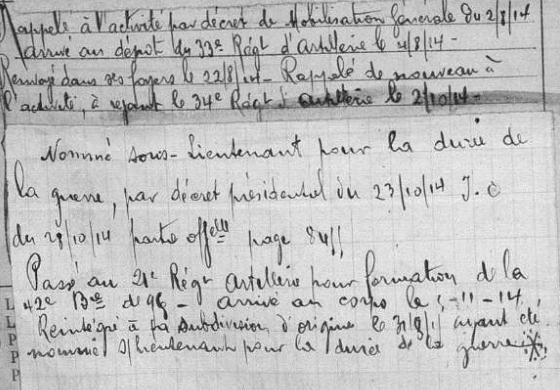 Rappelé à l'activité par décret de Mobilisation Générale du 2/8/14
arrivé au dépôt du 33e Régt d'Artillerie le 4/8/14 -
Renvoyé dans ses foyers le 22/8/14 - Rappelé de nouveau à
l'activité, a rejoint le 34e Régt d'Artillerie le 2/10/14 -
Nommé sous-lieutenant pour la durée de
la guerre, par décret présidentiel du 23/10/14 J. O
du 28/10/14 partie offelle page
Passé au 21e Régt Artillerie pour formation de la
42e Bie de 96 - arrivé au corps le -11-14
Réintégré à sa subdivision d'origine le ayant été
nommé s/lieutenant pour la durée de la guerre
L
L
P
P
P